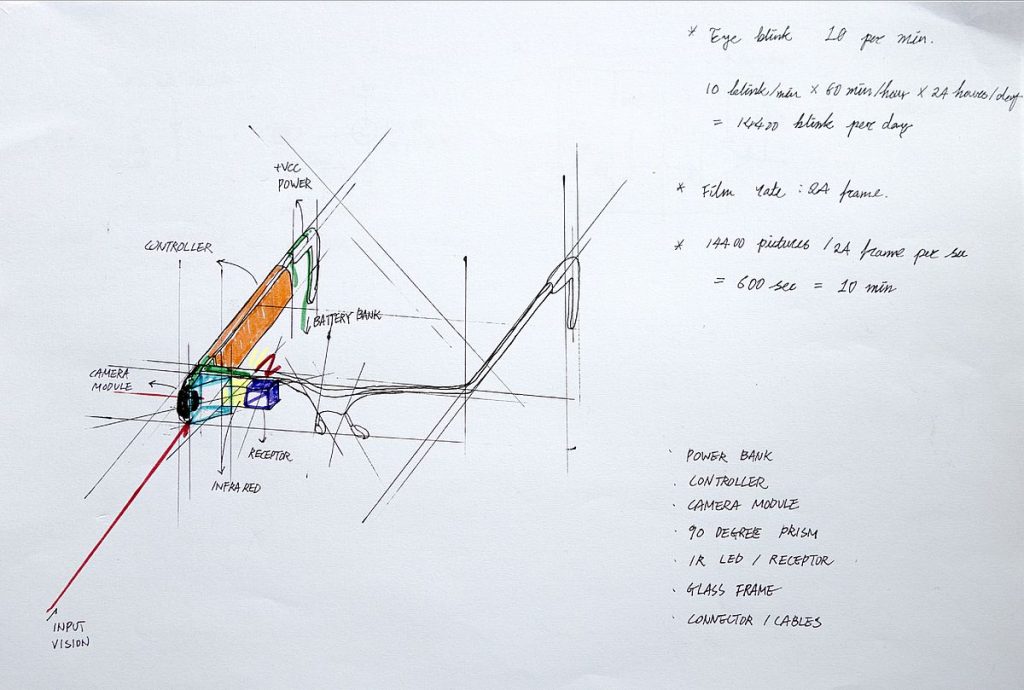 * Eye blink 10 per min.
10 blink/min × 60 min/hour × 24 hours/day
= 14400 blink per day
* Film rate : 24 frame.
* 14400 pictures / 24 frame per sec
= 600 sec = 10 min
+VCC
POWER
CONTROLLER
BATTERY BANK
CAMERA
MODULE
RECEPTOR
INFRARED
INPUT
VISION
· POWER BANK
· CONTROLLER
· CAMERA MODULE
· 90 DEGREE PRISM
· IR LED / RECEPTOR
· GLASS FRAME
· CONNECTOR / CABLES